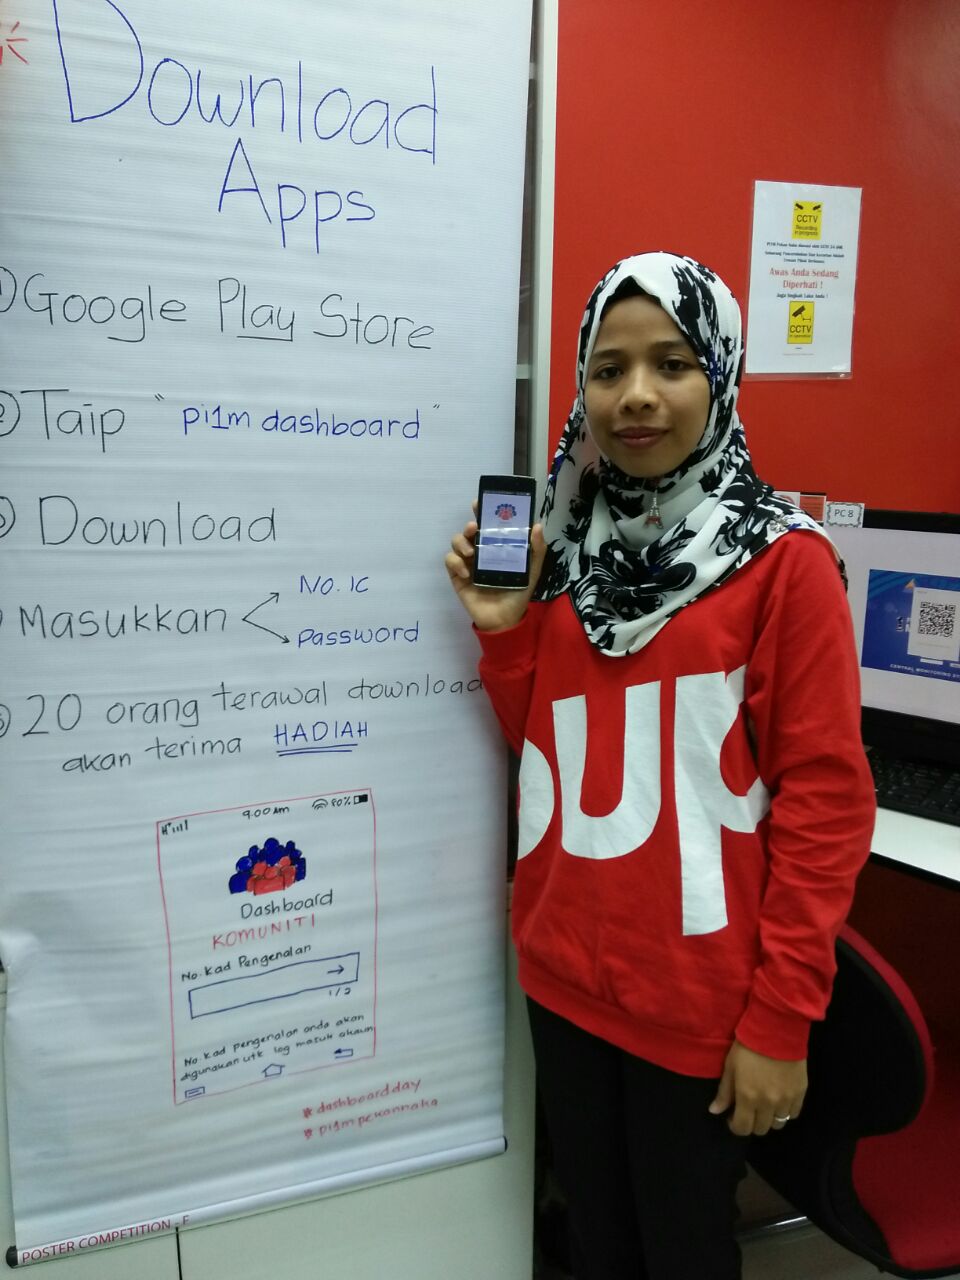 Download
Apps
1 Google Play Store
2 Taip "pi1m dashboard"
3 Download
Masukkan
No. IC
Password
5 20 orang terawal download
akan terima HADIAH
H+
9.00 AM
80%
Dashboard
KOMUNITI
No. Kad Pengenalan
1/2
No. Kad pengenalan anda akan
digunakan utk log masuk akaun
#dashboardday
#pi1mpekannaka
POSTER COMPETITION - F
CCTV
Recording
in progress
Awas Anda Sedang
Diperhati !
Jaga Tingkah Laku Anda !
CCTV
in operation
PC 8
oup
CENTRAL MONITORING